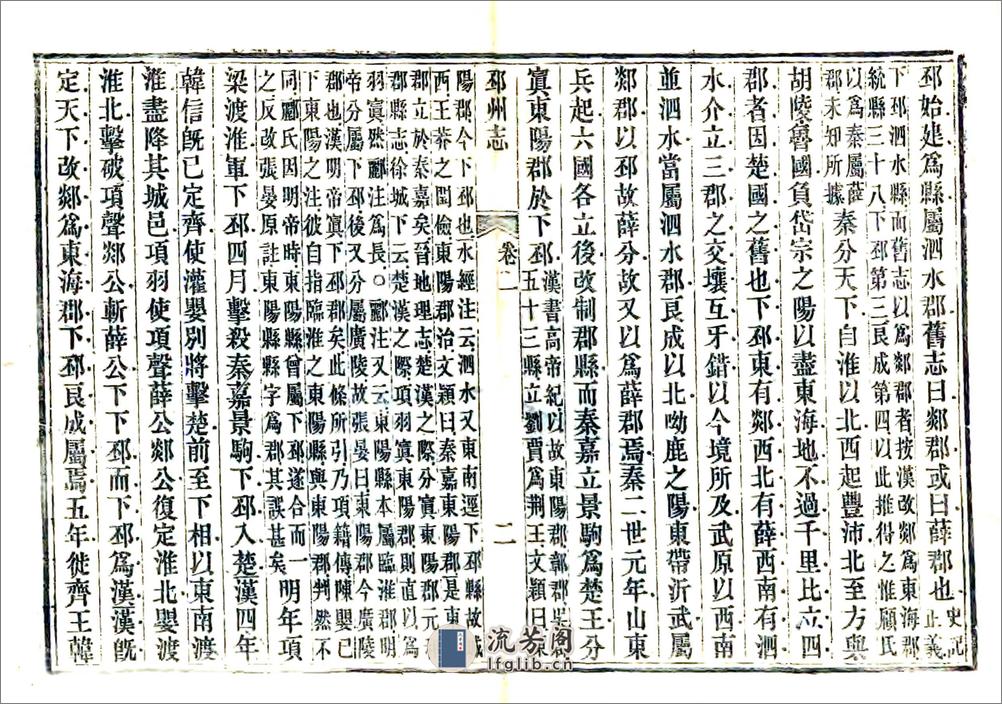 邳始建爲縣屬泗水郡舊志曰郯郡或曰薛郡也史記正義
下邳泗水縣而舊志以爲郯郡者按漢改郯爲東海郡
統縣三十八下邳第三良成第四以此推得之惟顧氏
以爲秦屬薛
郡未知所據
秦分天下自淮以北西起豐沛北至方與
胡陵魯國負岱宗之陽以盡東海地不過千里比立四
郡者因楚國之舊也下邳東有郯西北有薛西南有泗
水介立三郡之交壤互牙錯以今境所及武原以西南
並泗水當屬泗水郡良成以北呦鹿之陽東帶沂武屬
郯郡以邳故薛分故又以爲薛郡焉秦二世元年山東
兵起六國各立後改制郡縣而秦嘉立景駒爲楚王分
寘東陽郡於下邳
漢書高帝紀以故東陽郡鄣郡吳郡
五十三縣立劉賈爲荆王文穎曰東
邳州志
卷二
二
陽郡今下邳也水經注云泗水又東南逕下邳縣故城
西王莽之閏儉東陽郡治文穎曰秦嘉東陽郡是東陽
郡立於秦嘉矣晉地理志楚漢之際分寘東陽郡元和
郡縣志徐城下云楚漢之際項羽寘東陽郡則直以爲
羽寘然酈注爲長○酈注又云東陽縣本屬臨淮郡明
帝分屬下邳後又分屬廣陵故張晏曰東陽郡今廣陵
郡也漢明帝寘下邳郡矣此條所引乃項籍傳陳嬰已
下東陽之注彼自指臨淮之東陽縣與東陽郡判然不
同酈氏因明帝時東陽縣曾屬下邳遂合而一
之反改張晏原註東陽縣縣字爲郡其誤甚矣
明年項
梁渡淮軍下邳四月擊殺秦嘉景駒下邳入楚漢四年
韓信旣已定齊使灌嬰別將擊楚前至下相以東南渡
淮盡降其城邑項羽使項聲薛公郯公復定淮北嬰渡
淮北擊破項聲郯公斬薛公下下邳而下邳爲漢漢旣
定天下改郯爲東海郡下邳良成屬焉五年徙齊王韓
流芳阁
lfglib.cn